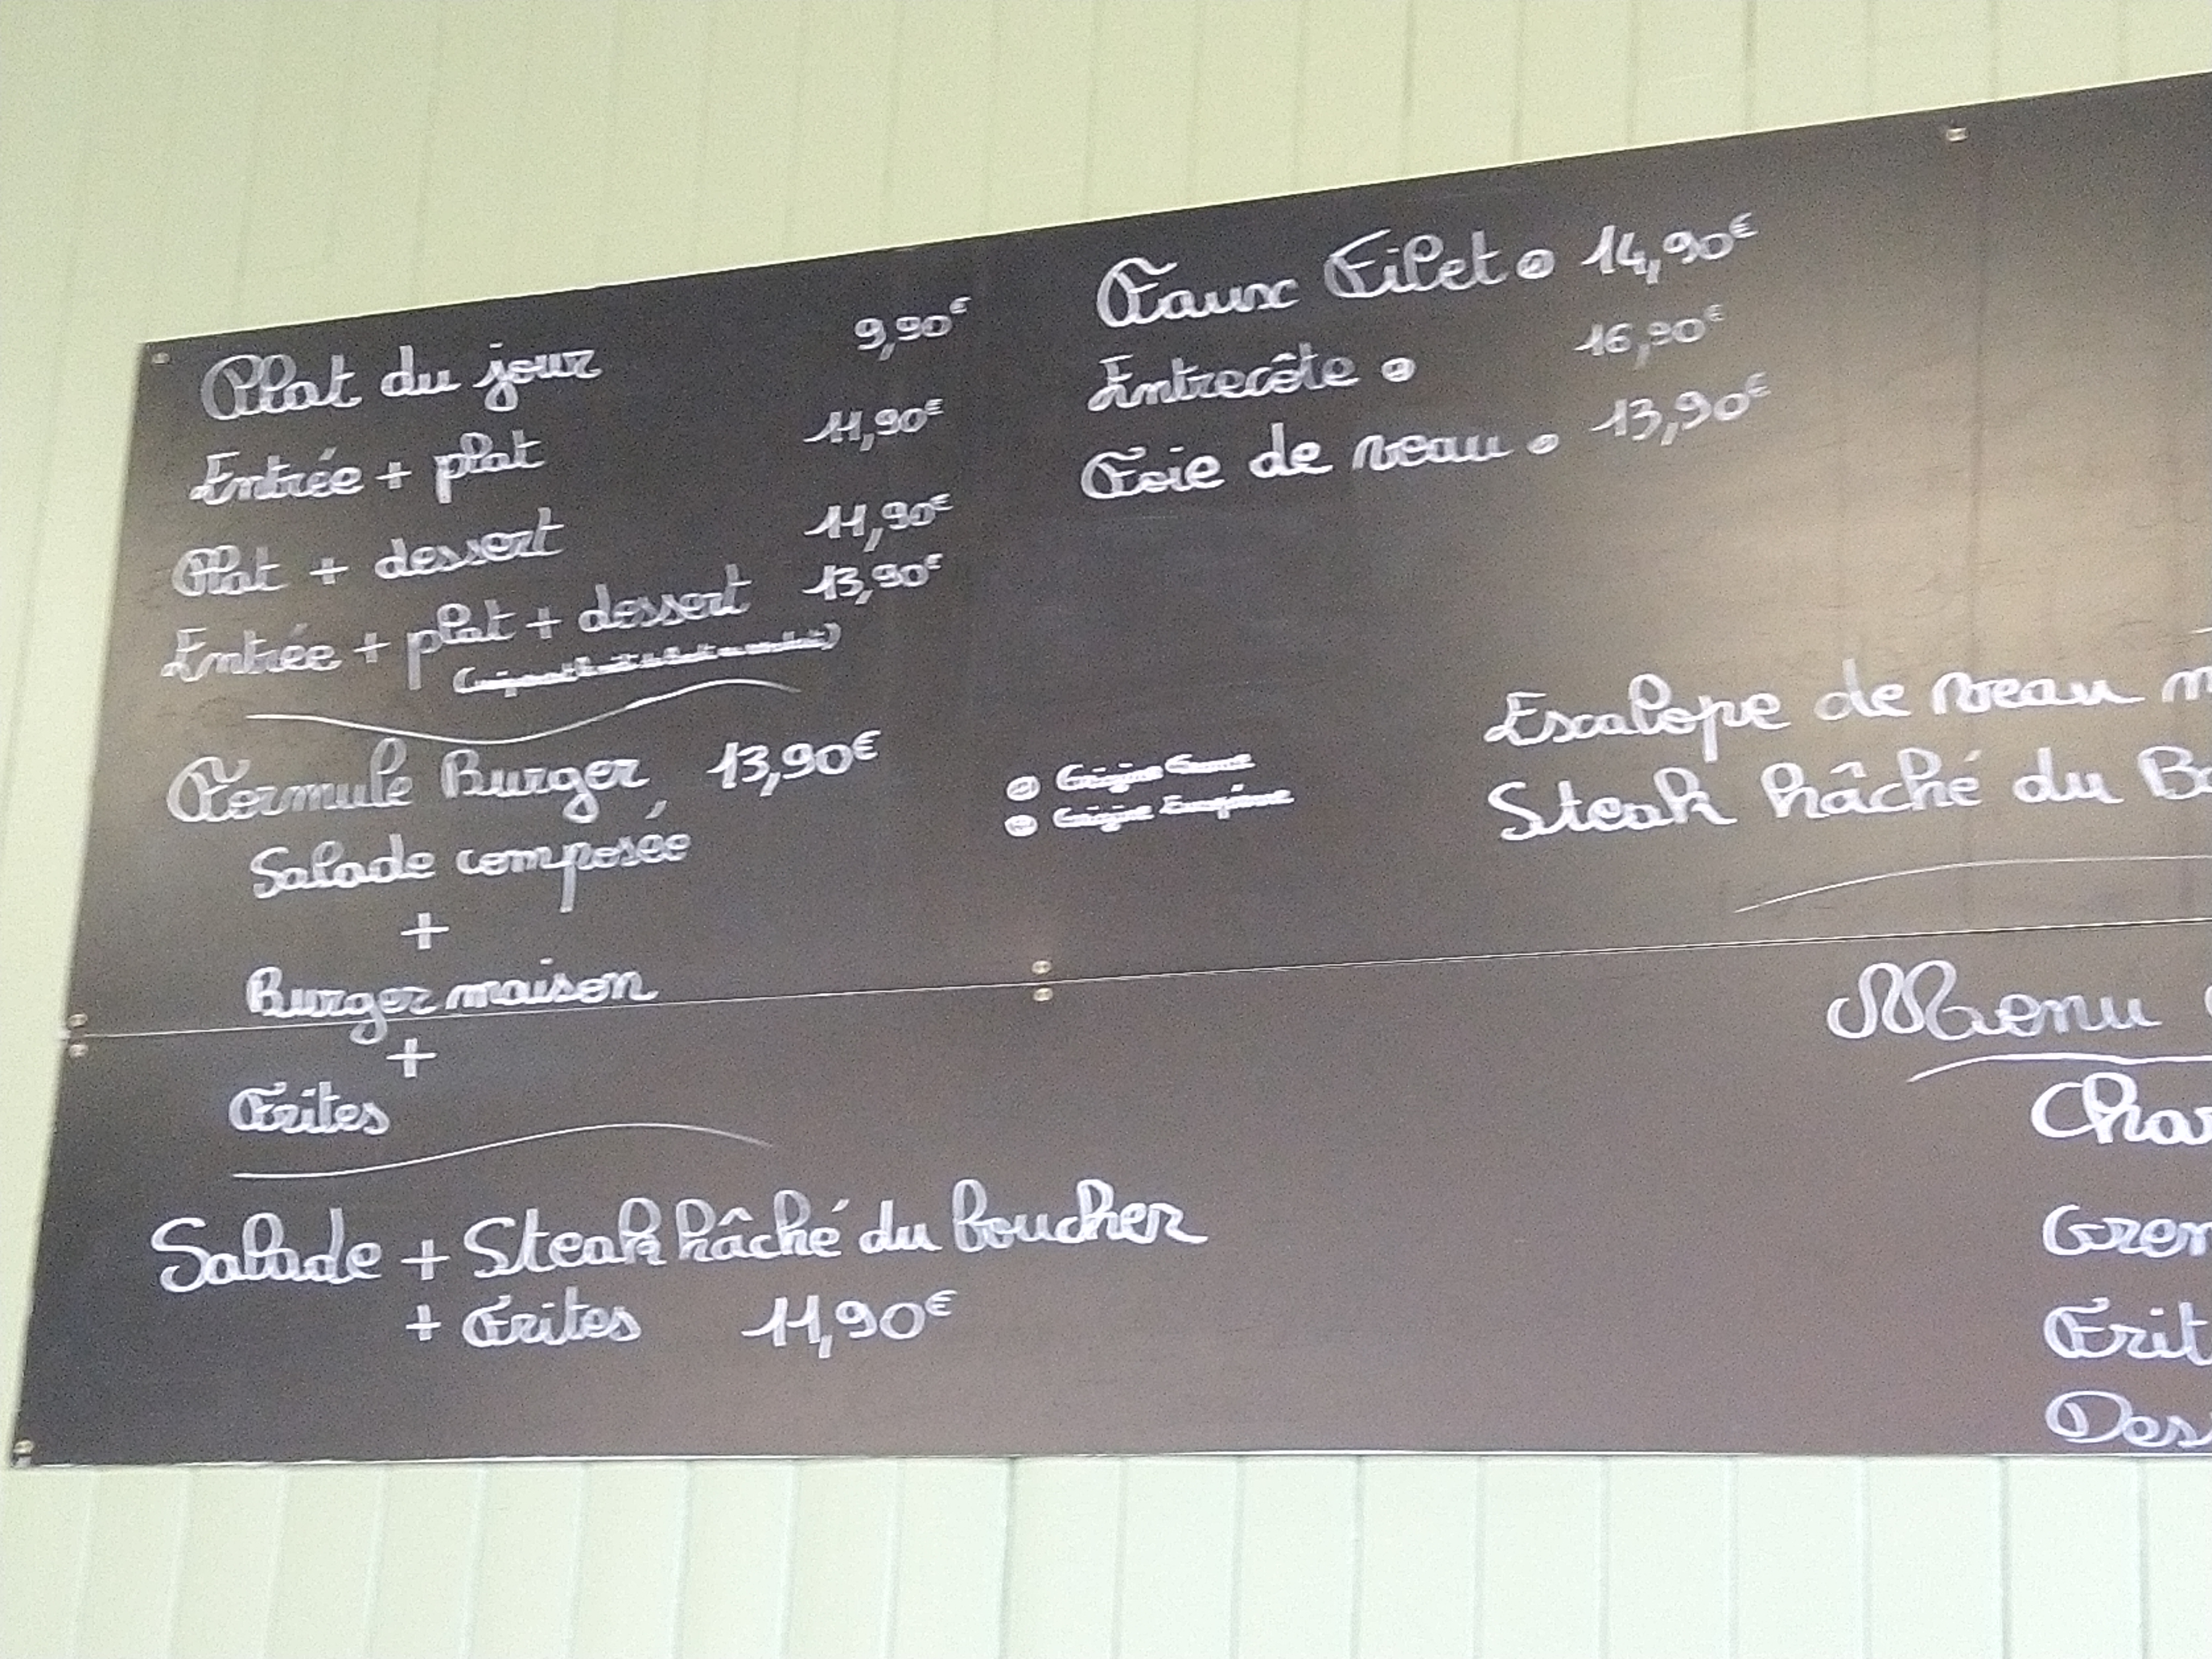 Plat du jour 9,90€
Entrée + plat 11,90€
Plat + dessert 11,90€
Entrée + plat + dessert 13,90€
Formule Burger 13,90€
Salade composée
+
Burger maison
+
Frites
Salade + Steak hâché du boucher
+ Frites 11,90€
Faux Filet 14,90€
Entrecôte 16,90€
Foie de veau 13,90€
Origine
Origine
Escalope de veau m
Steak hâché du Bo
Menu
Char
Gren
Frit
Des